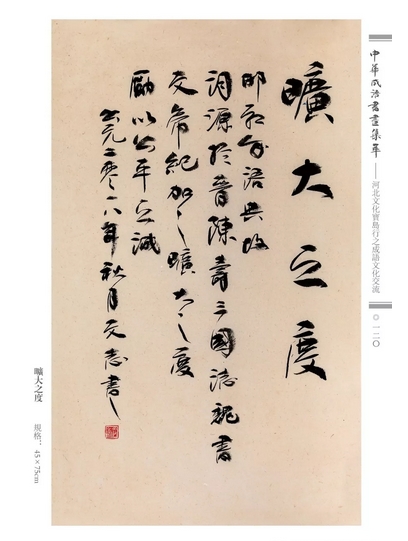 中華成語書畫集萃——河北文化寶島行之成語文化交流
○一二○
曠大之度
邯鄲成語典故
溯源於晉陳壽三國志魏書
文帝紀加之曠大之度
勵以公平之誠
公元二零一八年秋月文志書
曠大之度
規格：45×75cm